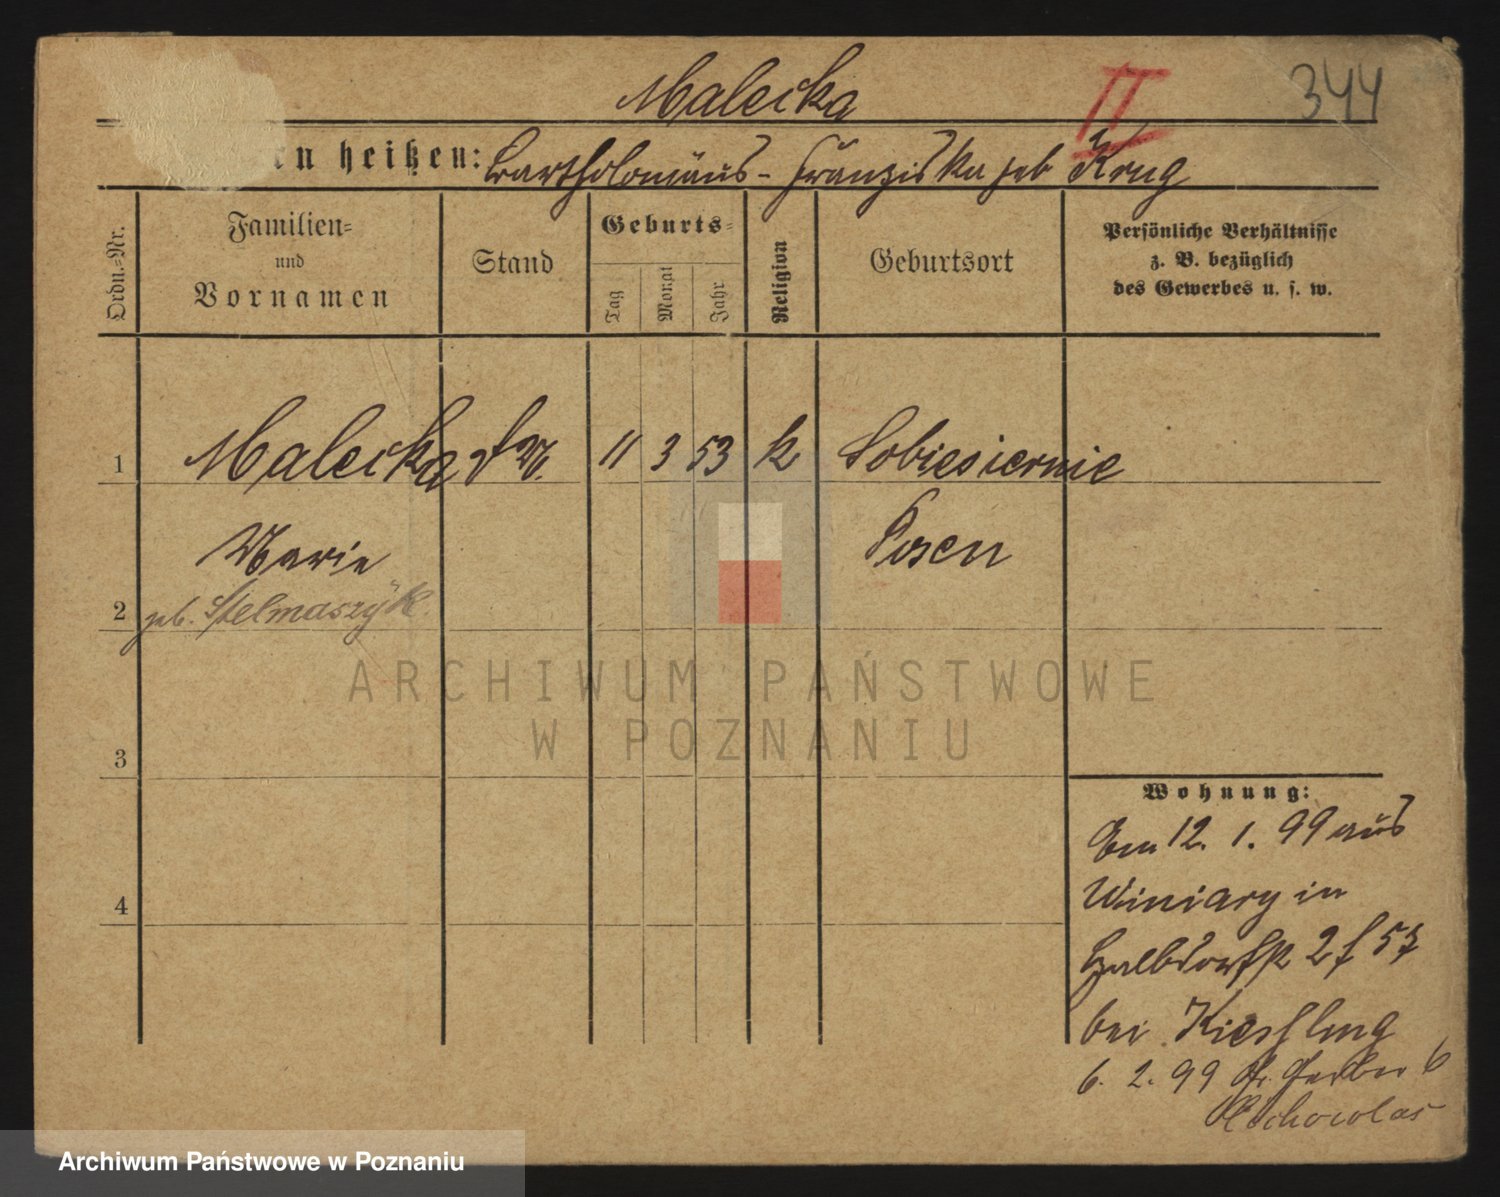 Malecka II 344
en heißen: Bartholomäus - Franziska geb Krug
Ordn.=Nr.
Familien=
und
Vornamen
Stand
Geburts=
Tag
Monat
Jahr
Religion
Geburtsort
Persönliche Verhältnisse
z. B. bezüglich
des Gewerbes u. s. w.
1 Malecka 11 3 53 k Sobiesiernie
Marie Posen
2 geb. Stelmaszÿk
ARCHIWUM PAŃSTWOWE
W POZNANIU
3
Wohnung:
Em 12. 1. 99 aus
4
Winiary in
Halbdorfstr 2
bei Kiessling
6. 2. 99 Gr. Gerber 6
Archiwum Państwowe w Poznaniu